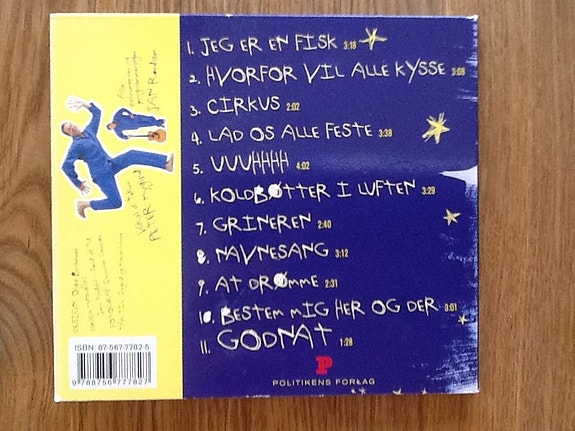 1. JEG ER EN FISK 3:18
2. HVORFOR VIL ALLE KYSSE 3:08
3. CIRKUS 2:02
4. LAD OS ALLE FESTE 3:38
5. UUUHHHH 4:02
6. KOLDBØTTER I LUFTEN 3:29
7. GRINEREN 2:40
8. NAVNESANG 3:12
9. AT DRØMME 2:31
10. BESTEM MIG HER OG DER 3:01
11. GODNAT 1:28
P
POLITIKENS FORLAG
JAN
PETER
DESIGN
ISBN: 87-567-7782-5
9 788756 777827